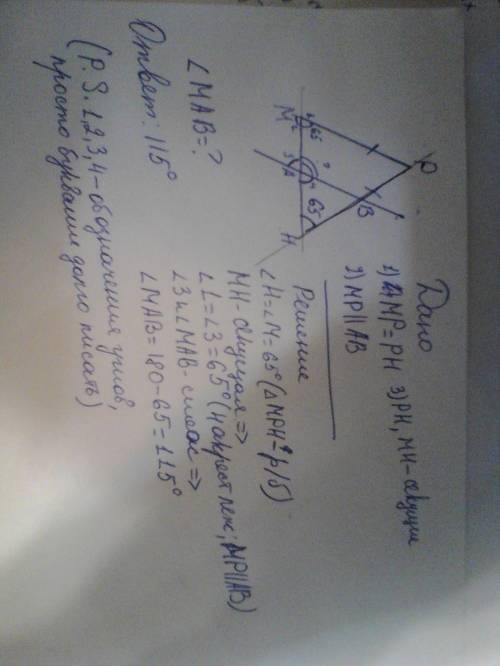 Дано
1) MP=PH 3) PH, MH-секущие
2) MP||AB
P
M
B
A
H
65
65
2
3
?
Решение
∠H=∠M=65° (△MPH-р/б)
MH-секущая =>
∠1=∠3=65° (накрест леж; MP||AB)
∠3 и ∠MAB-смеж =>
∠MAB=180-65=115°
∠MAB=?
Ответ: 115°
(P.S. 1,2,3,4-обозначения углов,
просто буквами долго писать)